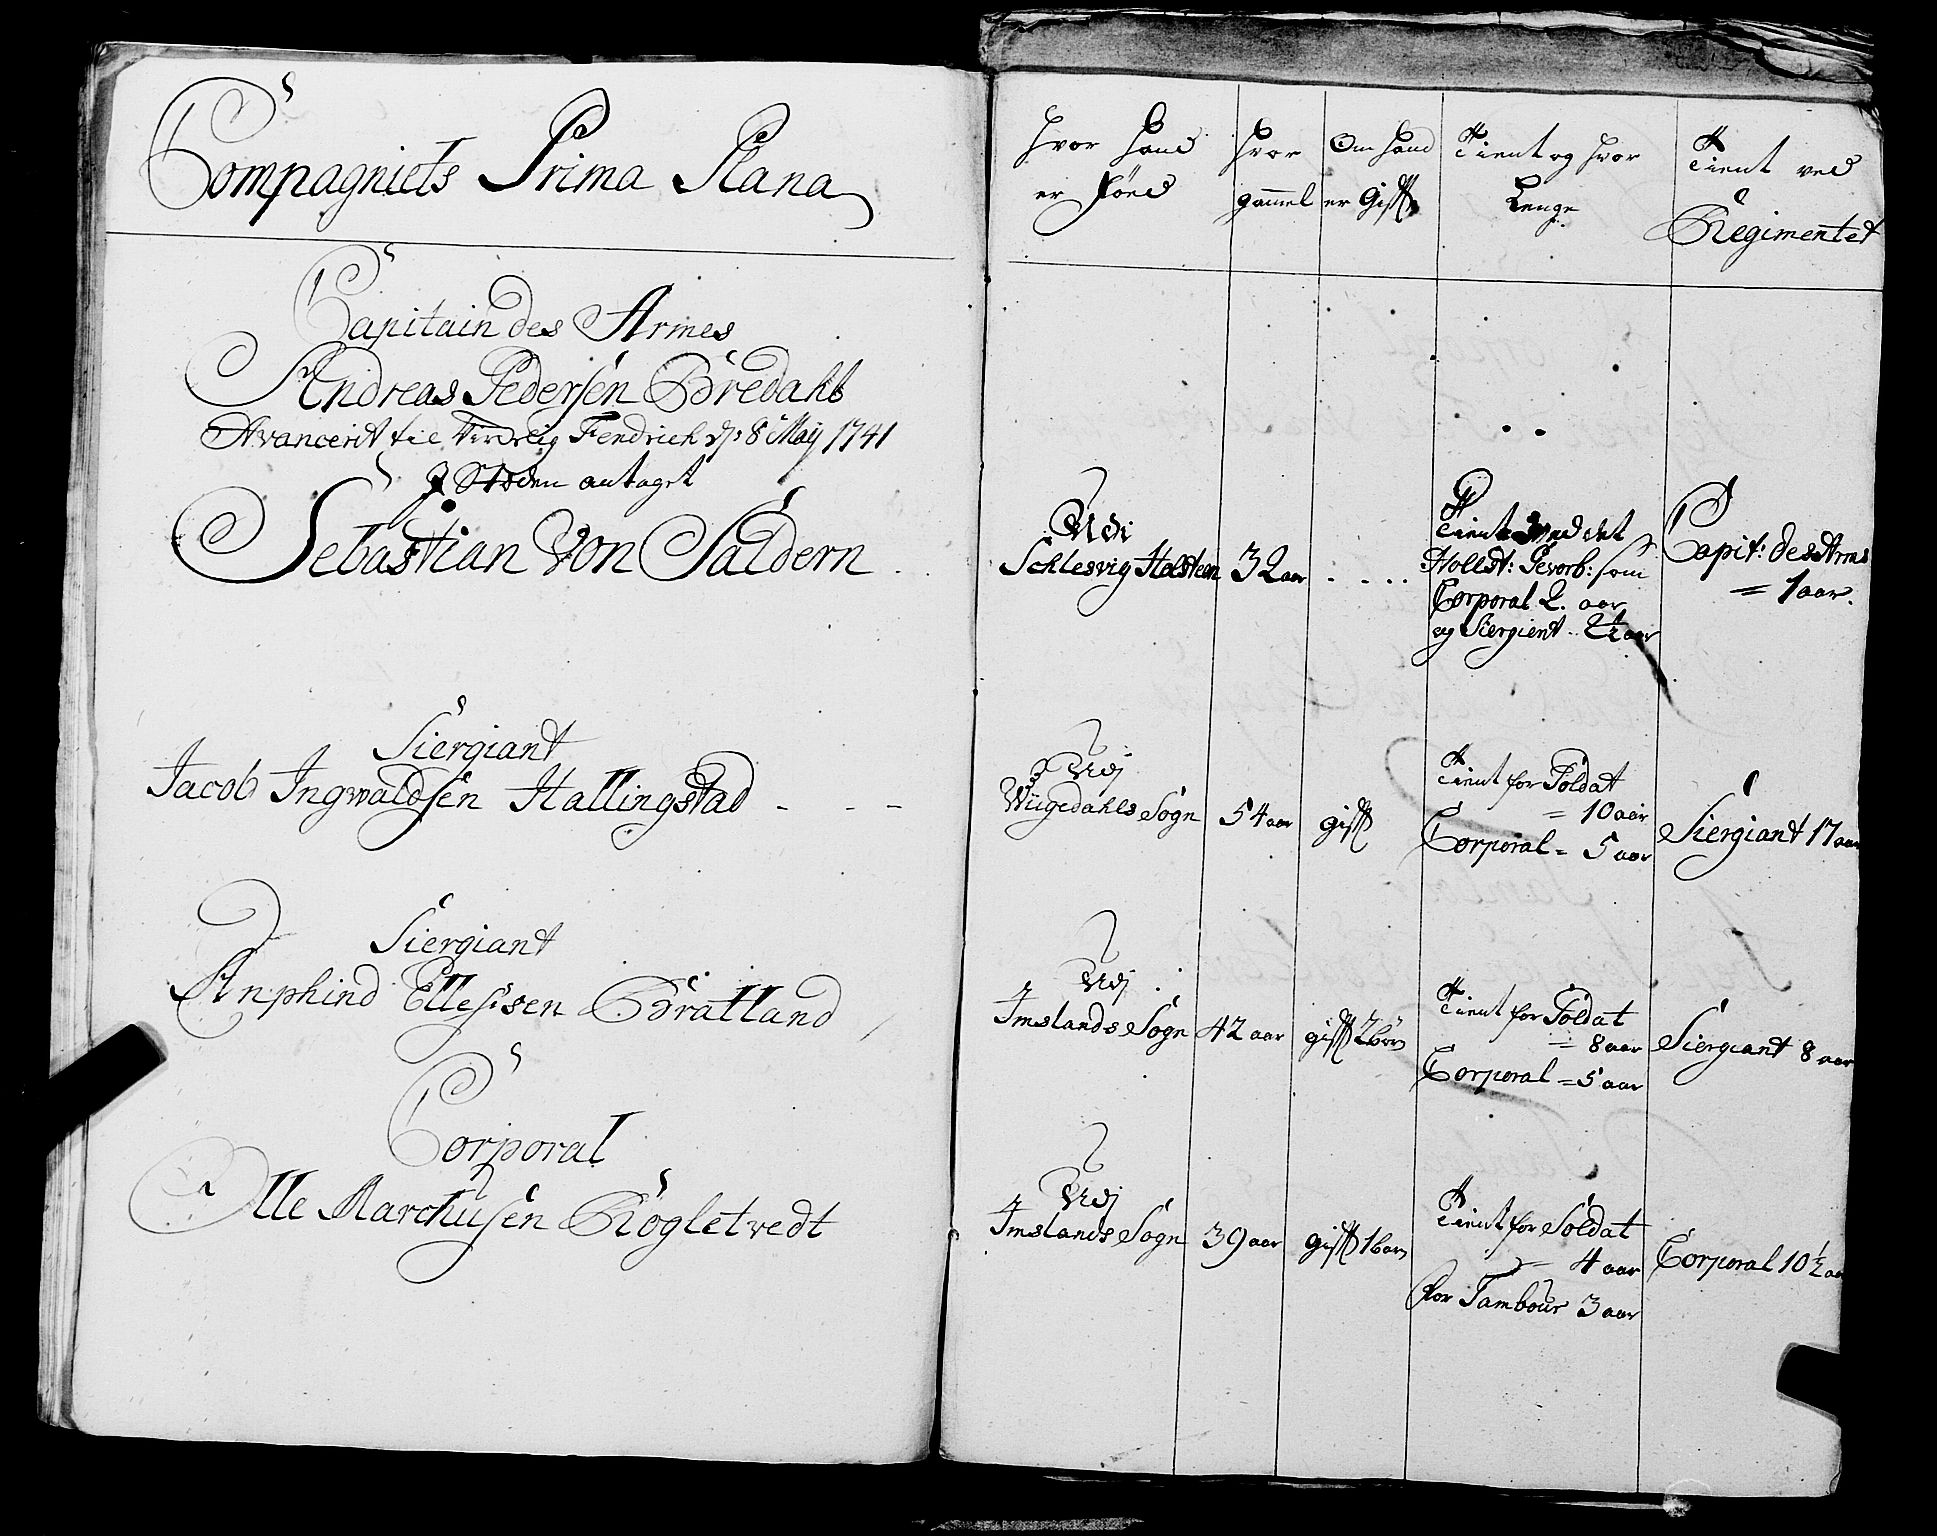 Compagniets Prima Plana
Capitain des Armes
Andreas Pedersen Bredahl
Avancerit til Fendrich d: 8 Maij 1741
J Stæden antaget
Sebastian Von Saldern
Siergiant
Jacob Ingwaldsen Hallingstad
Siergiant
Anphind Ellefsen Bratland
Corporal
Olle Marchusen Røgletvedt
Hvor Hand
er Föed
Hvor
gammel
Om Hand
er Gifft
Tient og Hvor
Lenge
Tient ved
Regimentet
Udi
Schlesvig Holsteen
32 aar
Tient ved det
Hollst: Gevorb: som
Corporal 2. aar
og Siergient 2½ aar
Capit: des Arms
= 1 aar.
Udj
Wiigedahls Sogn
54 aar
gifft
Tient for Soldat
= 10 aar
Corporal = 5 aar
Siergiant 17 aar
Udj
Imslands Sogn
42 aar
gifft 2 börn
Tient for Soldat
= 8 aar
Corporal = 5 aar
Siergiant 8 aar
Udj
Imslands Sogn
39 aar
gifft 1 barn
Tient for Soldat
= 4 aar
for Tambour 3 aar
Corporal 10½ aar